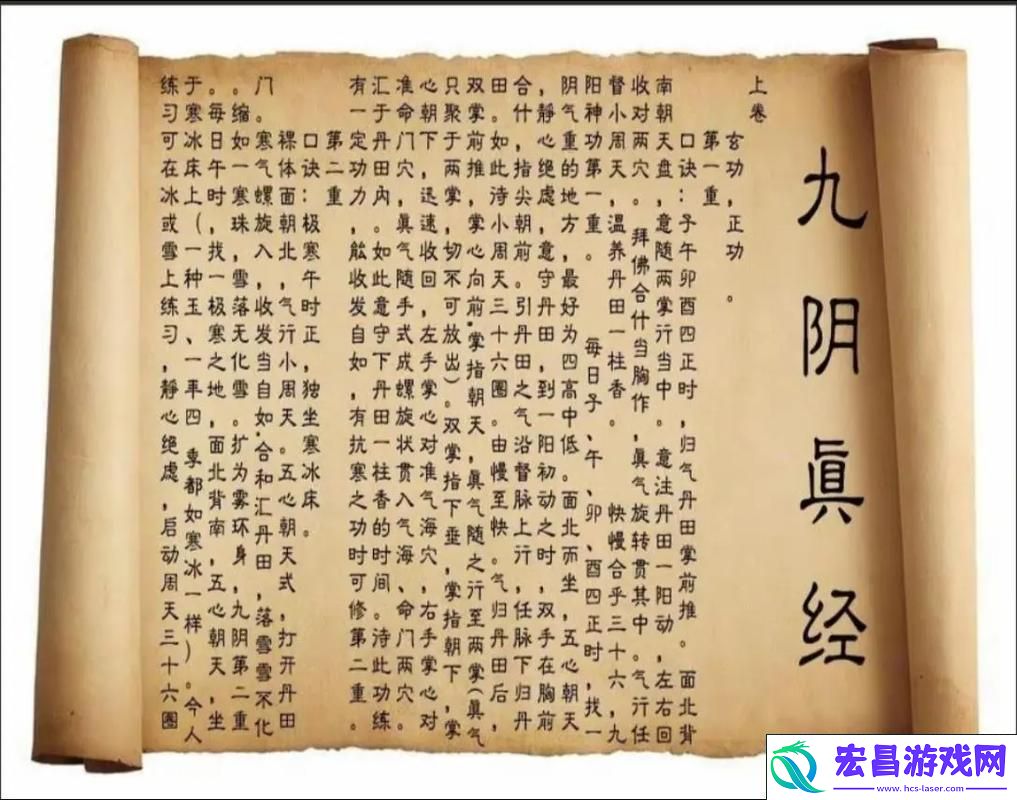 九阴眞经
上卷
玄功，正功。
第一重
口诀：子午卯酉四正时，归气丹田掌前推。面北背
南朝天盘，意随两掌行当中。意注丹田一阳动，左右回
收对两穴。拜佛合什当胸作，眞气旋转贯其中。气行任
督小周天，温养丹田一柱香。快慢合乎三十六，九
阳神功第一重。每日子、午、卯、酉四正时，找一
阴气重的地方，最好为四高中低。面北而坐，五心朝天
，静心绝虑，意守丹田，到一阳初动之时，双手在胸前
合什，指尖朝前。引丹田之气沿督脉上行，任脉下归丹
田。如此待小周天三十六圈。由慢至快。气归丹田后，
双掌前推，掌心向前.掌指朝天，眞气随之行至两掌(眞气
只聚于两掌，切不可放出)。双掌指下垂，掌指朝下，掌
心朝下，迅速收回，左手掌心对准气海穴，右手掌心对
准命门穴，眞气随手式成螺旋状贯入气海、命门两穴。
汇于丹田内。如此意守下丹田一柱香的时间。待此功练
有一定功力，能收发自如，有抗寒之功时可修第二重。
第二重
口诀：极寒午时正，独坐寒冰床。
裸体面朝北，气行小周天。五心朝天式，打开丹田
门。寒气螺旋入，收发当自如.合和汇丹田，落雪雪不化
。缩如一寒珠，雪落无化雪。扩为雾环身，九阴第二重
。每日午时，找一极寒之地，面北背南，五心朝天，坐
于寒冰床上(一种玉、一年四季都如寒冰一样)。今人
练习可在冰或雪上练习，静心绝虑，启动周天三十六圈
宏昌游戏网
www.hcs-laser.com